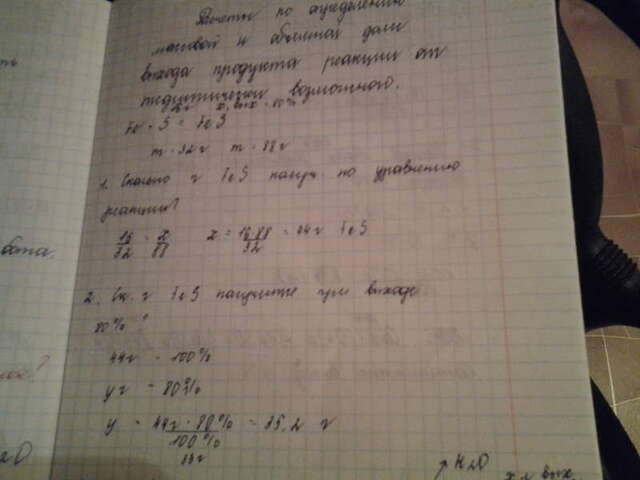 Расчеты по определению
массовой и объемной доли
выхода продукта реакции от
теоретически возможного.
Fe + S = FeS
m = 32 г m = 88 г
1. Сколько г FeS получ по уравнению
реакции?
16/32 = x/88 x = 16·88/32 = 44 г FeS
2. Ск. г FeS получится при выходе
80% ?
44 г - 100%
y г - 80%
y = 44 г · 80% / 100% = 35,2 г
бота.
H2O